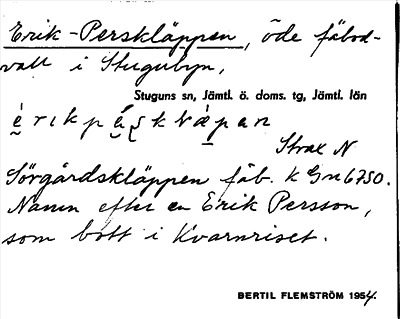 Erik-Perskläppen, öde fäbod-
vall i Stugubyn,
Stuguns sn, Jämtl. ö. doms. tg, Jämtl. län
Strax N
Sörgårdskläppen fäb. k Gn 6750.
Namn efter en Erik Persson,
som bott i Kvarnriset.
BERTIL FLEMSTRÖM 1954.